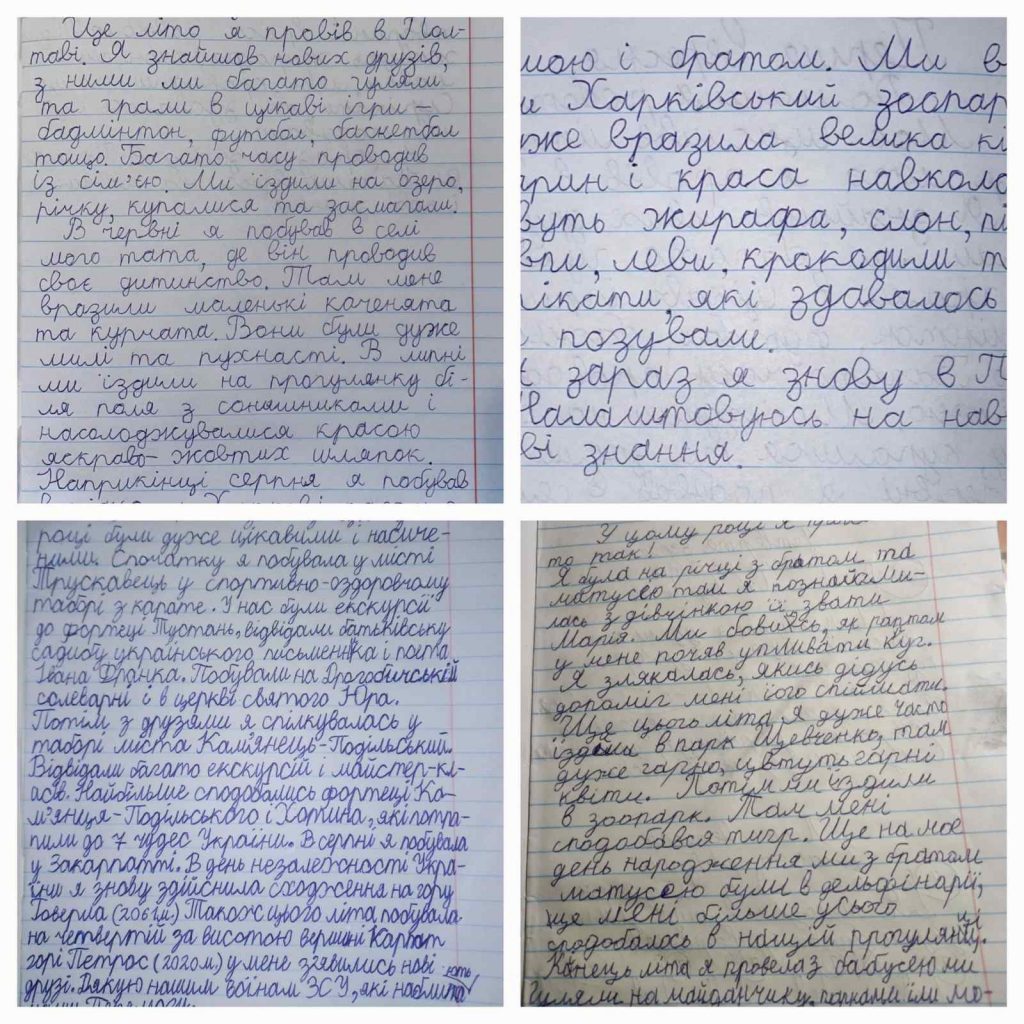 Це літо я провів в Пол-
таві. Я знайшов нових друзів,
з ними ми багато гуляли
та грали в цікаві ігри –
бадмінтон, футбол, баскетбол
тощо. Багато часу проводив
із сім'єю. Ми їздили на озеро,
річку, купалися та засмагали.
В червні я побував в селі
мого тата, де він проводив
своє дитинство. Там мене
вразили маленькі каченята
та курчата. Вони були дуже
милі та пухнасті. В липні
ми їздили на прогулянку бі-
ля поля з соняшниками і
насолоджувалися красою
яскраво-жовтих шляпок.
Наприкінці серпня я побував
мою і братом. Ми в
и Харківський зоопар
же вразила велика кі
арин і краса навколо
вуть жирафа, слон, пі
впи, леви, крокодили т
лікати, які здавалось
позували.
зараз я знову в П
Налаштовуюсь на нав
ві знання.
році були дуже цікавими і насиче-
ними. Спочатку я побувала у місті
Трускавець у спортивно-оздоровчому
таборі з карате. У нас були екскурсії
до фортеці Тустань, відвідали батьківську
садибу українського письменника і поета
Івана Франка. Побували на Дрогобичській
солеварні і в церкві святого Юра.
Потім з друзями я спілкувалась у
таборі міста Кам'янець-Подільський.
Відвідали багато екскурсій і майстер-кл-
асів. Найбільше сподобались фортеці Ка-
м'янця-Подільського і Хотина, які потра-
пили до 7 чудес України. В серпні я побувала
у Закарпатті. В день незалежності Укра-
їни я знову здійснила сходження на гору
Говерла (2061м) Також цього літа побувала
на четвертій за висотою вершині Карпат
горі Петрос (2020м) у мене зявились нові
друзі. Дякую нашим воїнам ЗСУ, які наближа-ють
У цому році я
то так!
Я була на річці з братом та
матусею там я познайоми-
лась з дівчінкою її звати
Марія. Ми бовились, як раптом
у мене почяв упливати куг.
Я злякалась, якись дідусь
допоміг мені його спіймати.
Ще цього літа я дуже часто
їздила в парк Шевченко, там
дуже гарно, цвтуть гарні
квіти. Потім ми їздили
в зоопарк. Там мені
сподобався тигр. Ще на моє
день народження ми з братом
матусею були в дельфінарії,
це мені більше усього
сродобалось в нащій прогулянці.
Канець літа я провела з бабусею ми
гуляли на майданчику, парками їли мо-